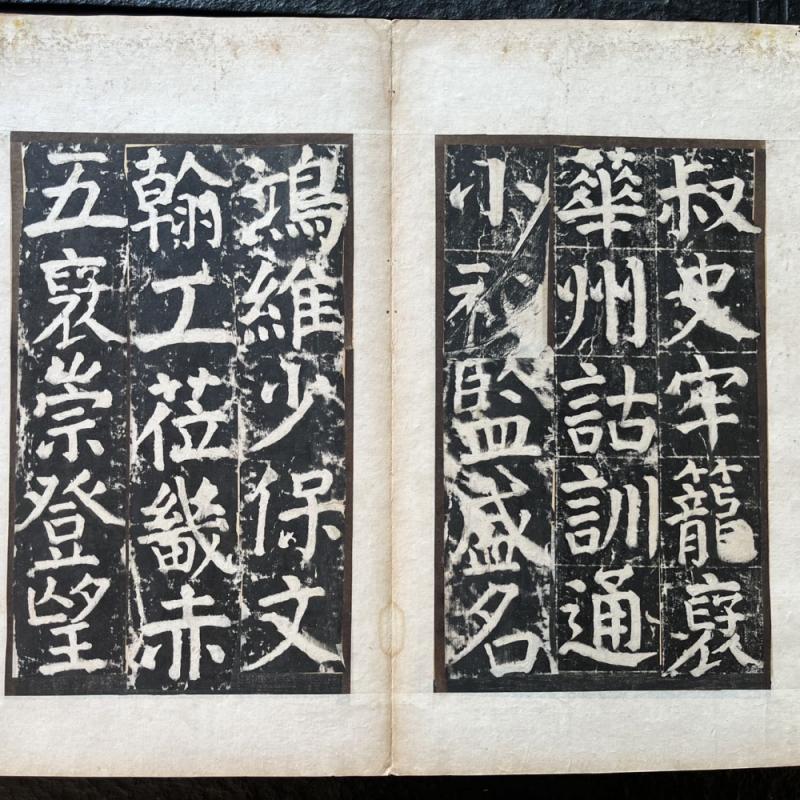 叔史牢籠裦
華州詁訓通
小祕監盛名
鴻維少保文
翰工莅畿赤
五裦崇登望